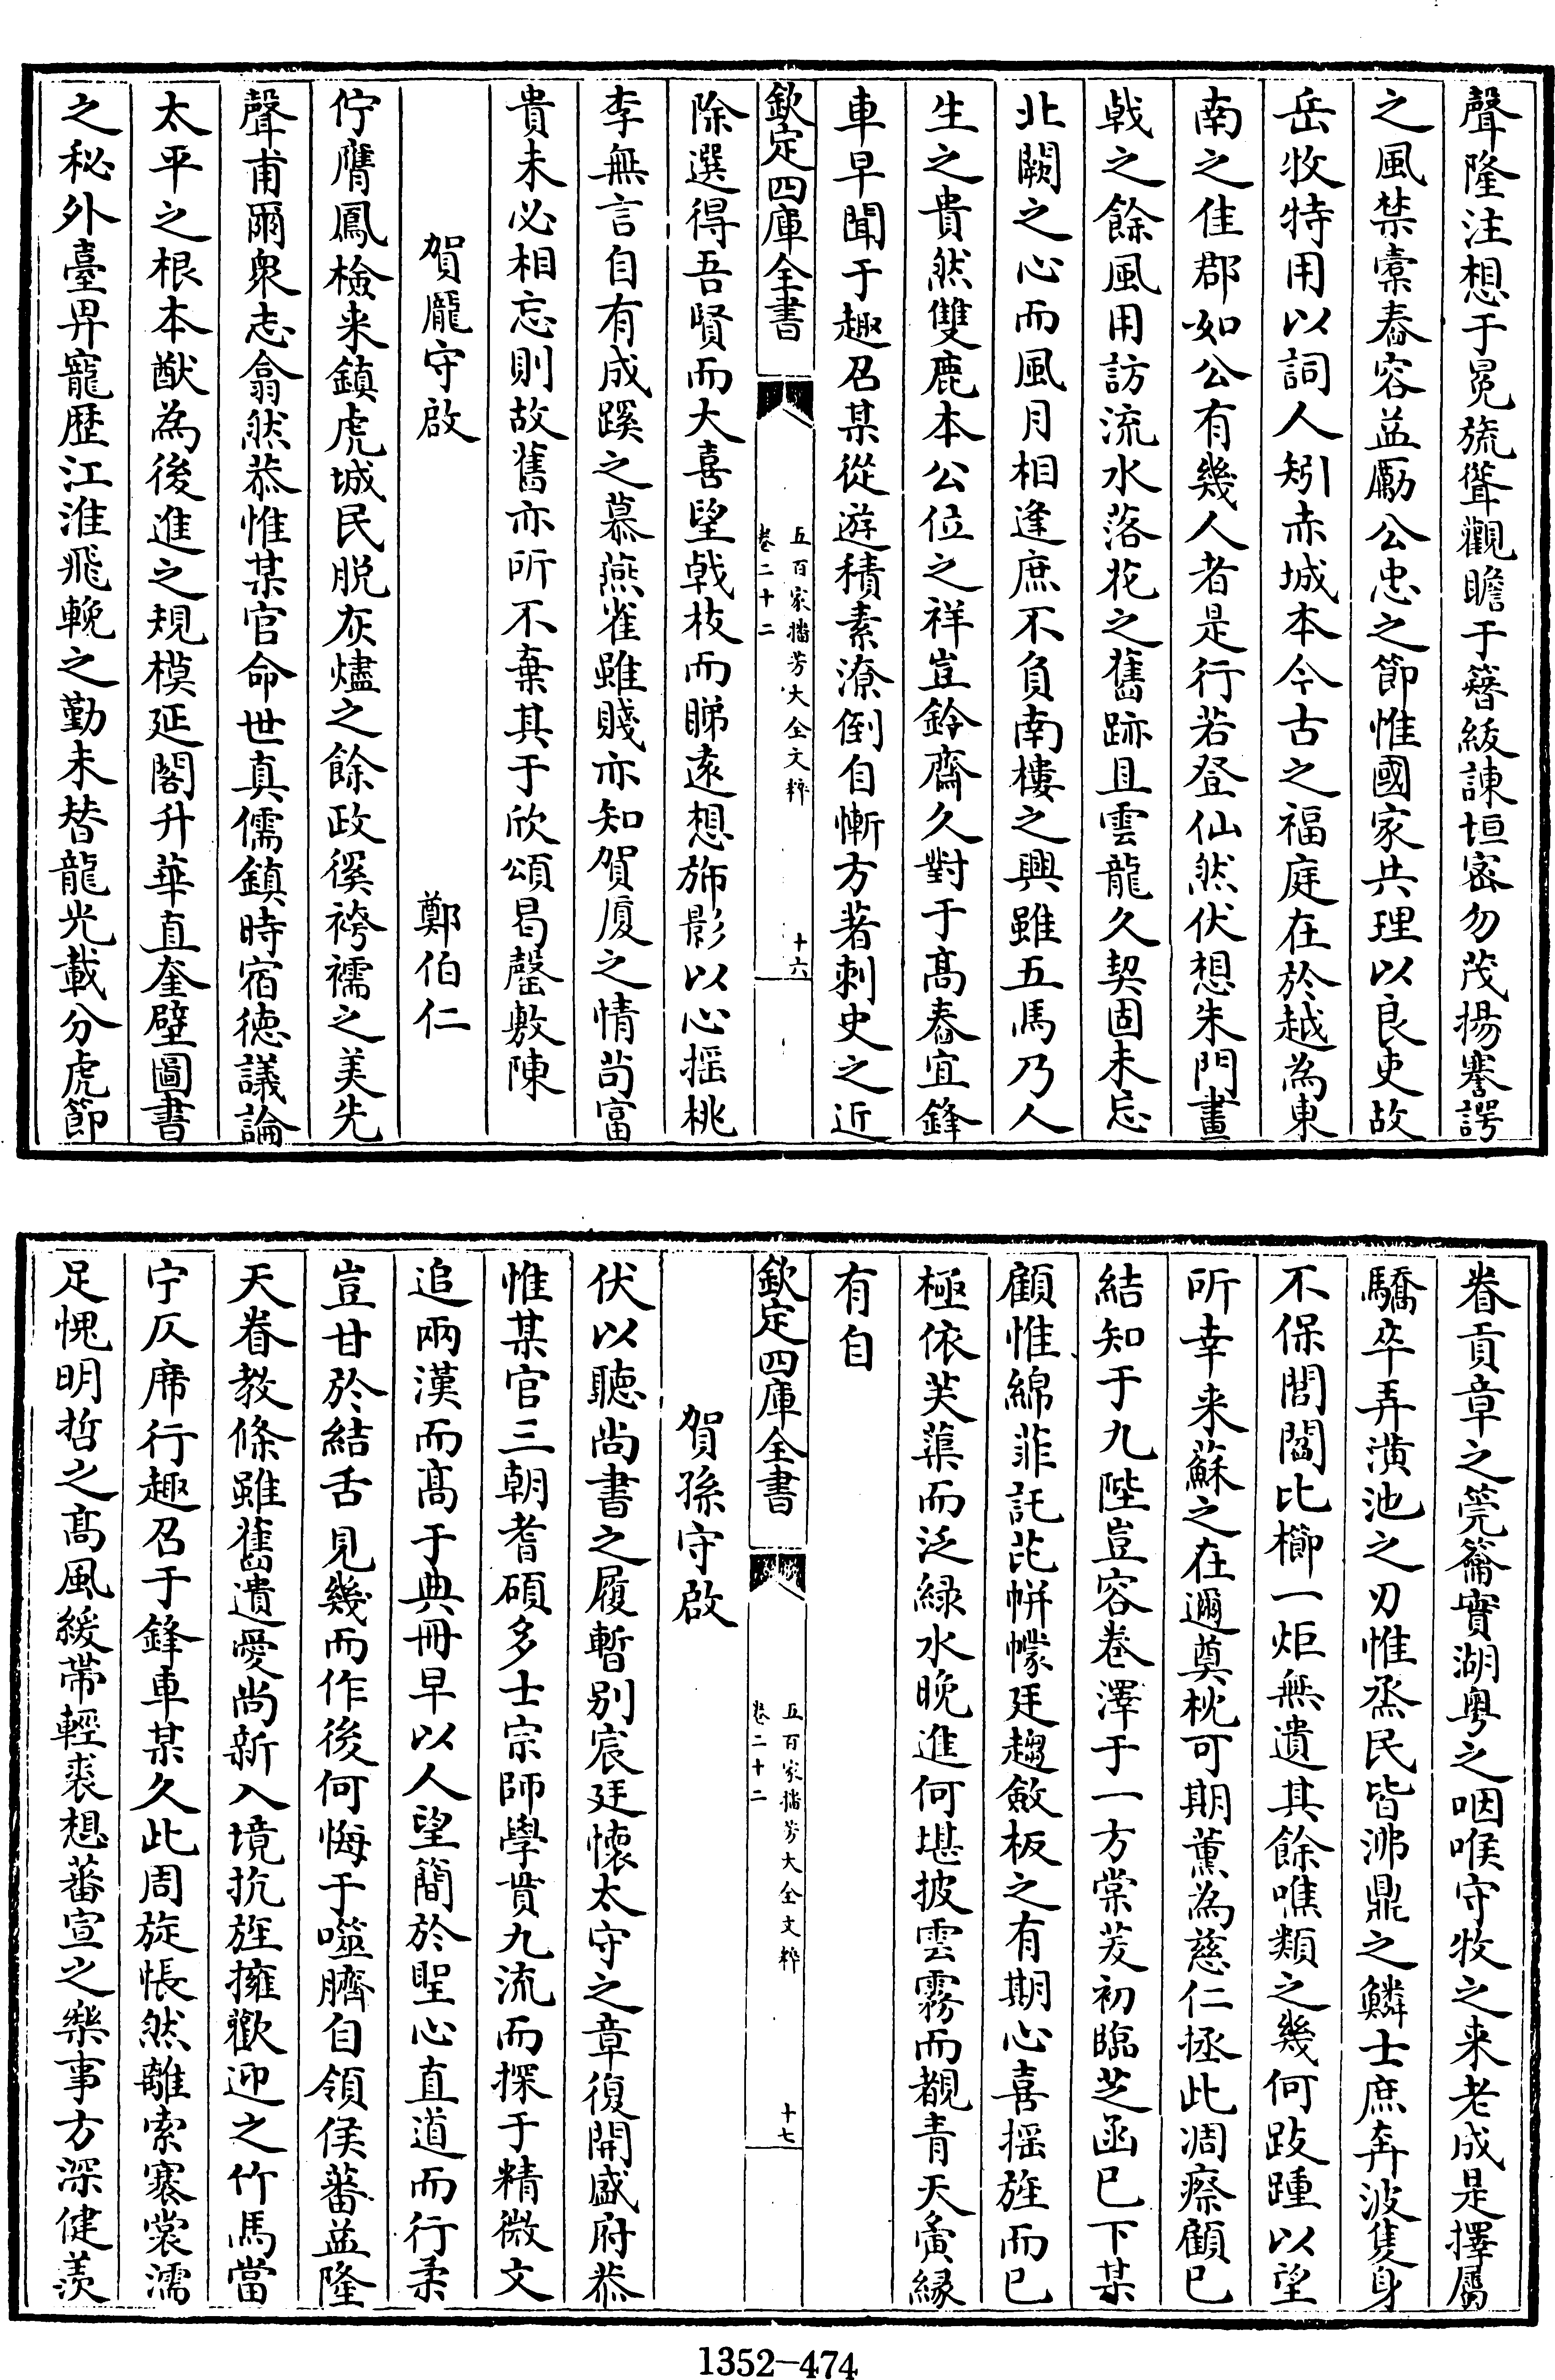 聲隆注想于冕旒聳觀瞻于簪紱諫垣密勿茂揚謇諤
之風禁橐舂容益勵公忠之節惟國家共理以良吏故
岳牧特用以詞人矧赤城本今古之福庭在於越為東
南之佳郡如公有幾人者是行若登仙然伏想朱門畫
㦸之餘風用訪流水落花之舊跡且雲龍久契固未忘
北闕之心而風月相逢庶不負南樓之興雖五馬乃人
生之貴然雙鹿本公位之祥豈鈴齋久對于高舂宜鋒
車早聞于趣召某從遊積素潦倒自慚方著刺史之近
欽定四庫全書
五百家播芳大全文粹
卷二十二
十六
除選得吾賢而大喜望㦸枝而睇遠想斾影以心揺桃
李無言自有成蹊之慕燕雀雖賤亦知賀厦之情茍富
貴未必相忘則故舊亦所不棄其于欣頌曷罄敷陳
賀龎守啟
鄭伯仁
佇膺鳳檢来鎮虎城民脱灰燼之餘政徯袴襦之美先
聲甫爾衆志翕然恭惟某官命世真儒鎮時宿徳議論
太平之根本猷為後進之規模延閣升華直奎壁圖書
之秘外臺畀寵歴江淮飛輓之勤未替龍光載分虎節
眷貢章之筦籥實湖粤之咽喉守牧之来老成是擇屬
驕卒弄潢池之刃惟烝民皆沸鼎之鱗士庶奔波隻身
不保閭閻比櫛一炬無遺其餘噍類之幾何跂踵以望
所幸来蘇之在邇奠枕可期薰為慈仁拯此凋瘵顧已
結知于九陛豈容巻澤于一方棠茇初臨芝函已下某
顧惟綿菲託芘帡幪廷趨斂板之有期心喜揺旌而已
極依芙蕖而泛緑水晚進何堪披雲霧而覩青天夤縁
有自
欽定四庫全書
五百家播芳大全文粹
卷二十二
十七
賀孫守啟
伏以聽尚書之履暫别宸廷懐太守之章復開盛府恭
惟某官三朝耆碩多士宗師學貫九流而探于精微文
追兩漢而高于典冊早以人望簡於聖心直道而行柔
豈甘於結舌見幾而作後何悔于噬臍自領侯蕃益隆
天眷教條雖舊遺愛尚新入境抗旌擁歡迎之竹馬當
宁仄席行趣召于鋒車某久此周旋悵然離索褰裳濡
足愧明哲之高風緩帶輕裘想蕃宣之樂事方深健羡
1352-474